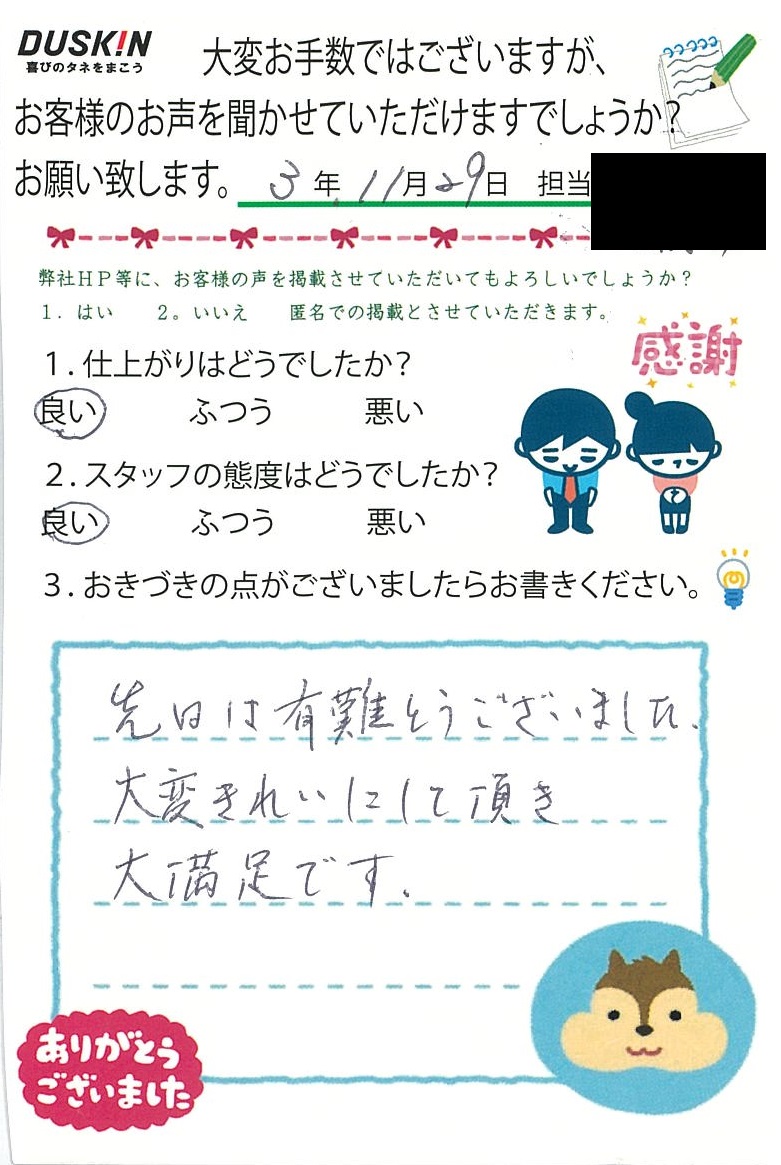 DUSKIN
喜びのタネをまこう
大変お手数ではございますが、
お客様のお声を聞かせていただけますでしょうか?
お願い致します。 3年11月29日 担当
弊社HP等に、お客様の声を掲載させていただいてもよろしいでしょうか?
1. はい 2。いいえ 匿名での掲載とさせていただきます。
感謝
1.仕上がりはどうでしたか?
良い ふつう 悪い
2.スタッフの態度はどうでしたか?
良い ふつう 悪い
3.おきづきの点がございましたらお書きください。
先日は有難とうございました.
大変きれいにして頂き
大満足です.
ありがとう
ございました